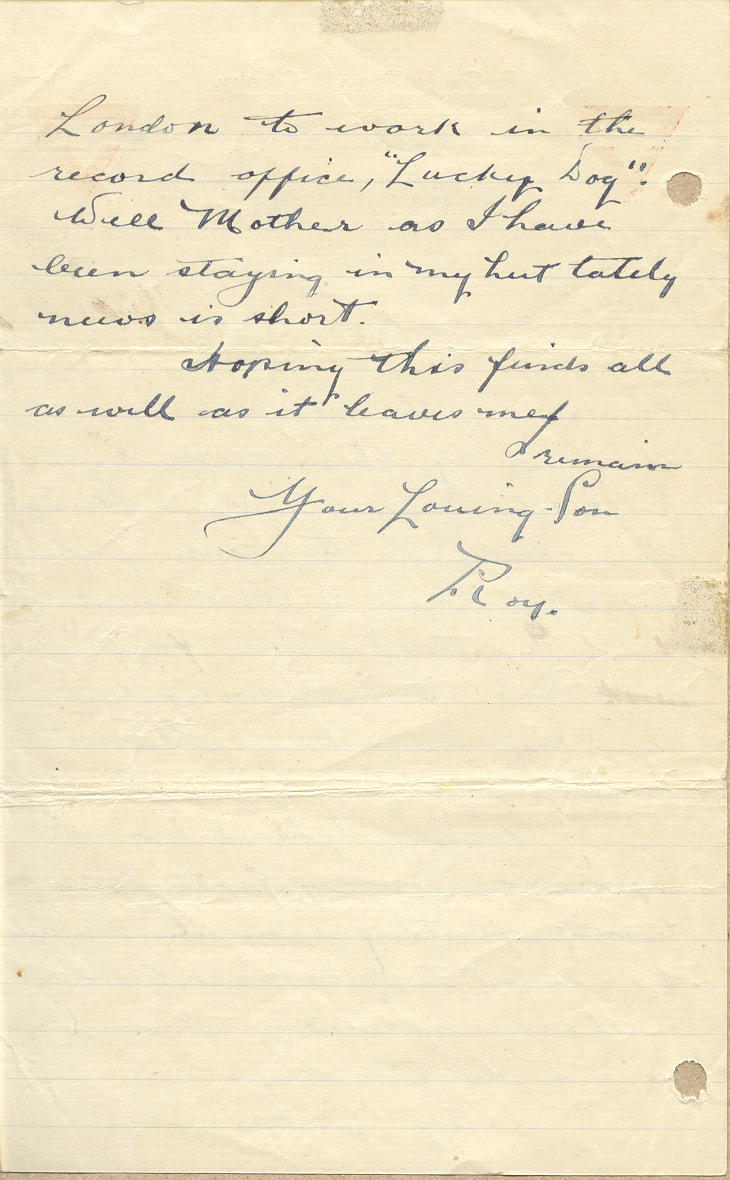 London to work in the
record office, "Lucky Dog".
Well Mother as I have
been staying in my hut lately
news is short.
Hoping this finds all
as well as it leaves me I
remain
Your Loving Son
Roy.